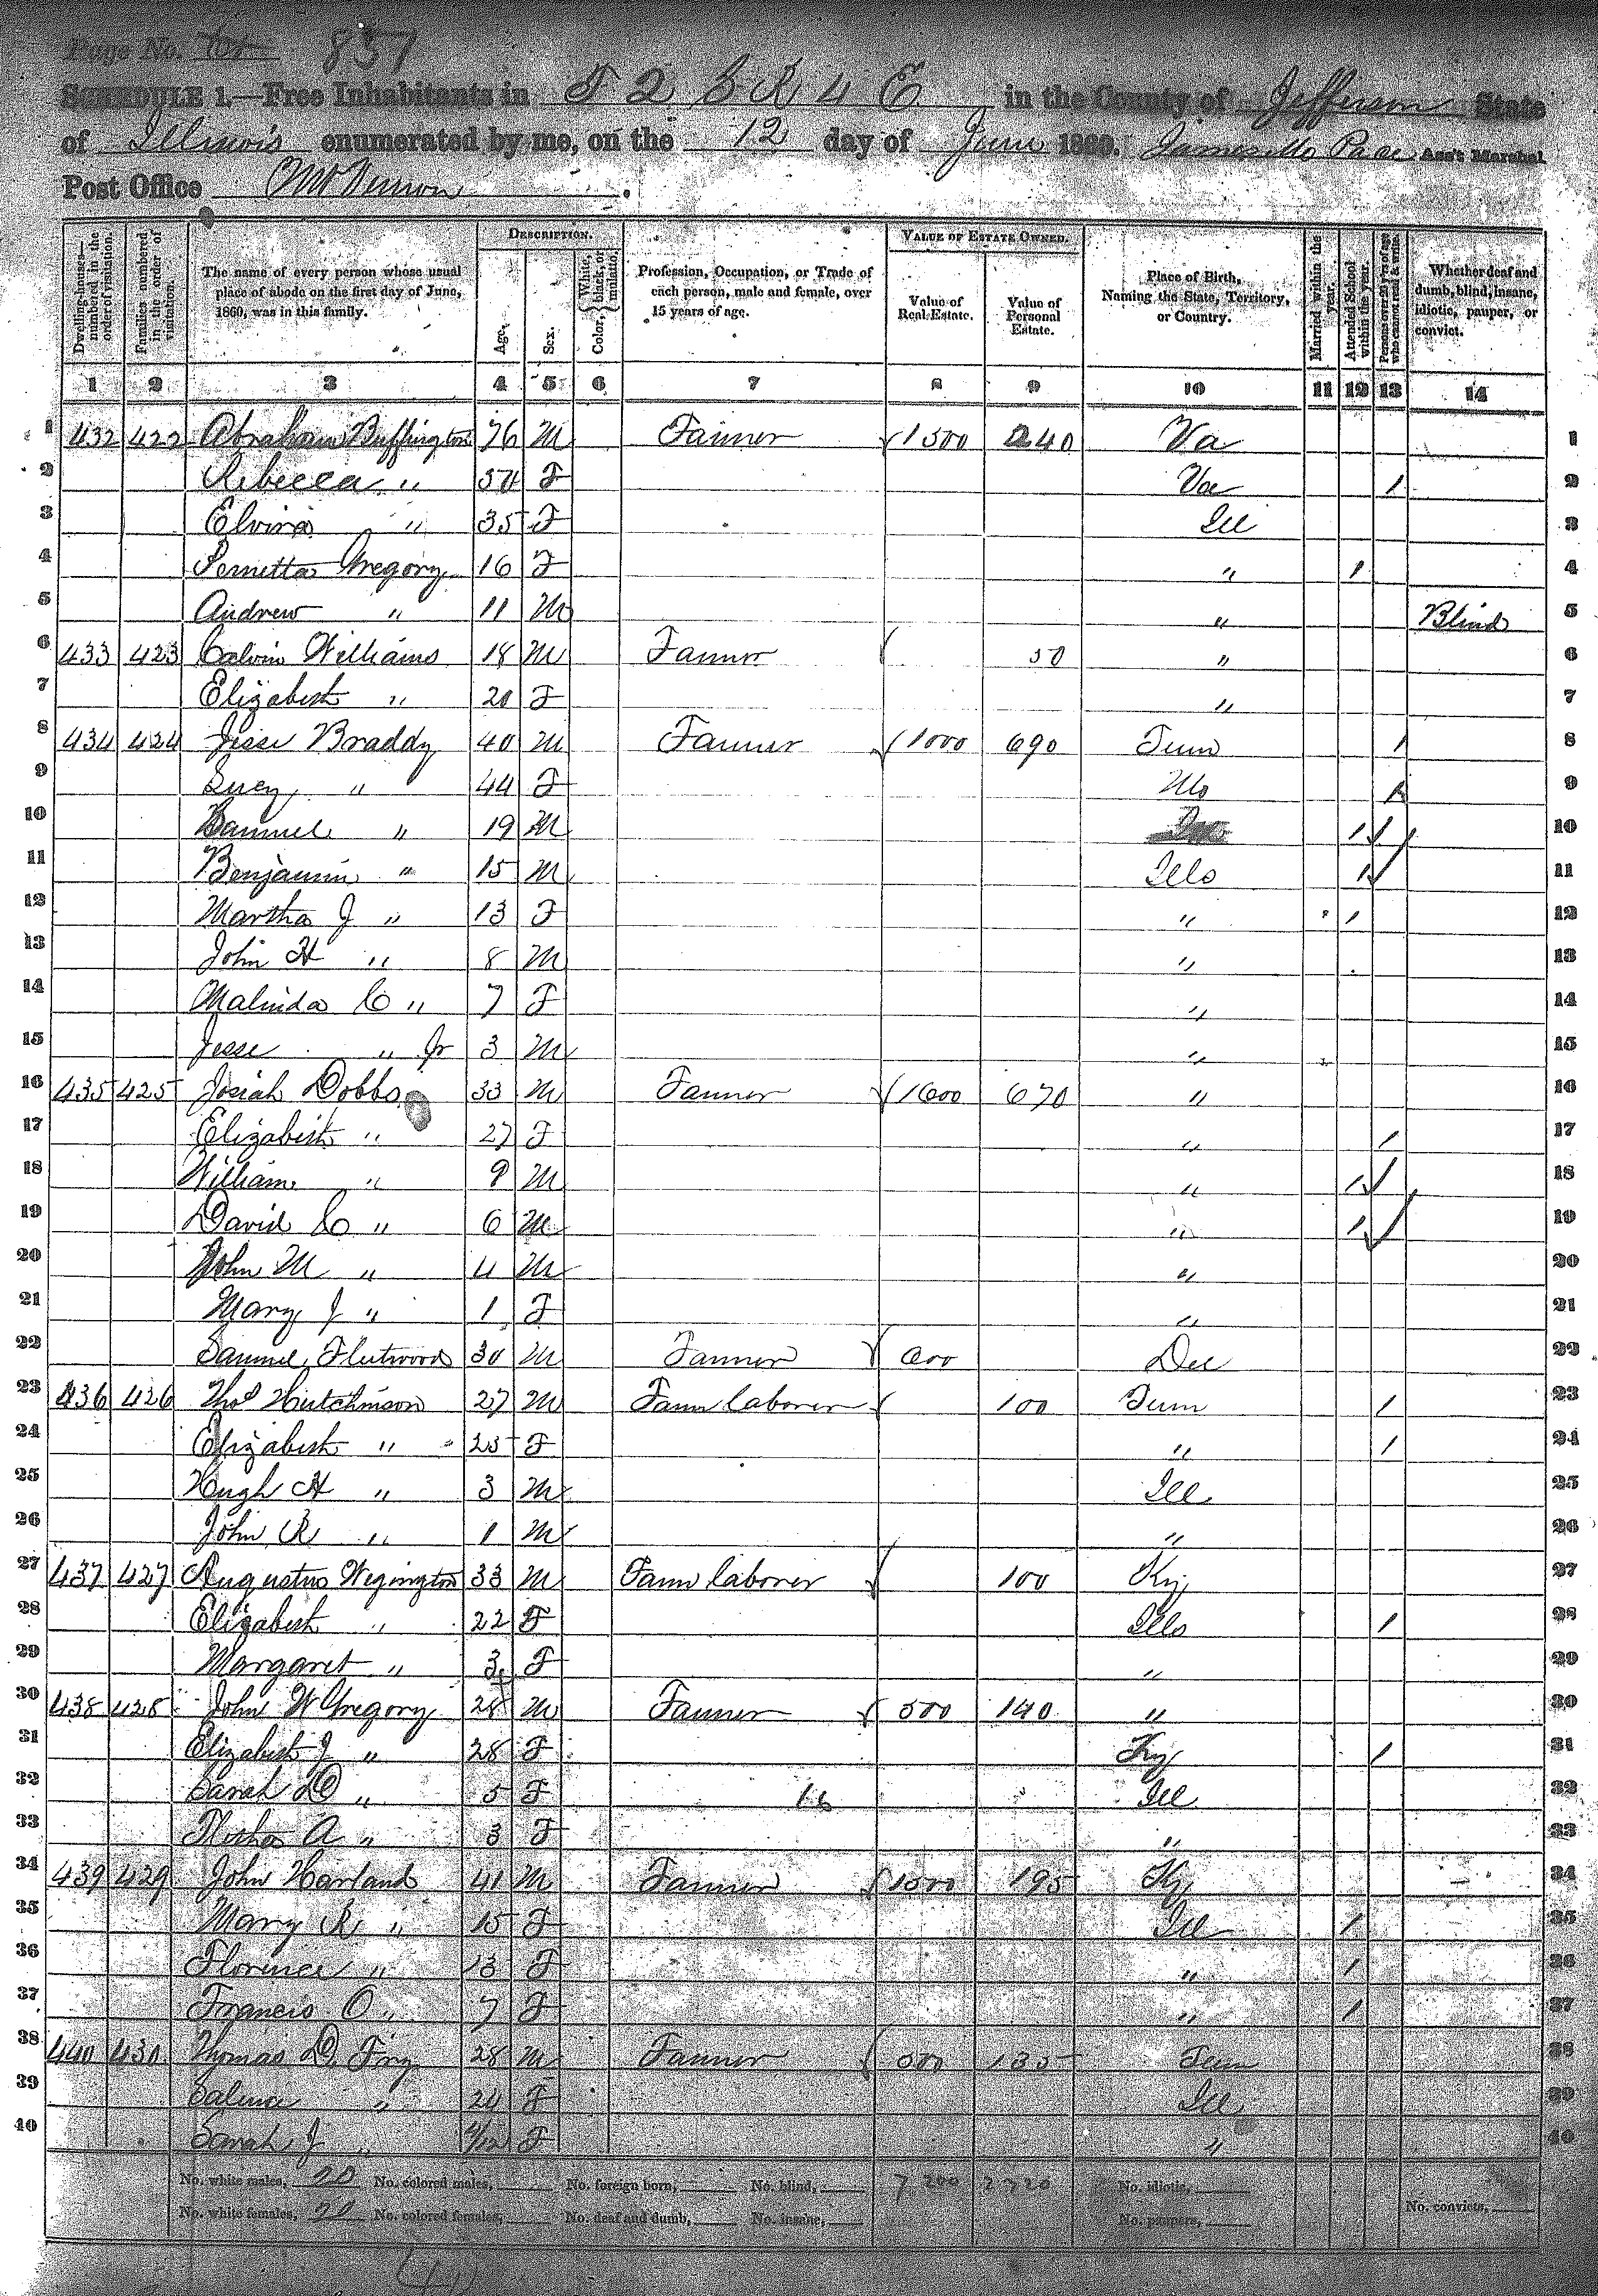 Page No. 857
SCHEDULE 1.—Free Inhabitants in T 2 S R 4 E in the County of Jefferson State
of Illinois enumerated by me, on the 12 day of June 1860. Ass't Marshal
Post Office Mt Vernon.
Dwelling-houses—numbered in the order of visitation. Families numbered in the order of visitation. The name of every person whose usual place of abode on the first day of June, 1860, was in this family. DESCRIPTION. Age. Sex. Color, {White, black, or mulatto. Profession, Occupation, or Trade of each person, male and female, over 15 years of age. VALUE OF ESTATE OWNED. Value of Real Estate. Value of Personal Estate. Place of Birth, Naming the State, Territory, or Country. Married within the year. Attended School within the year. Persons over 20 y'rs of age who cannot read & write. Whether deaf and dumb, blind, insane, idiotic, pauper, or convict.
1 2 3 4 5 6 7 8 9 10 11 12 13 14
1 432 422 Abraham Buffington 76 M Farmer 1500 240 Va 1
2 Rebecca " 54 F Va / 2
3 Elvira " 35 F Ill 3
4 Gregory 16 F " 1 4
5 Andrew " 11 M " Blind 5
6 433 423 Calvin Williams 18 M Farmer 50 " 6
7 Elizabeth " 20 F " 7
8 434 424 Jesse Braddy 40 M Farmer 1000 690 Tenn 1 8
9 Lucy " 44 F Mo 1 9
10 Samuel " 19 M 1 10
11 Benjamin " 15 M Ills 1 11
12 Martha J " 13 F " 1 12
13 John H " 8 M " 13
14 Malinda C " 7 F " 14
15 Jesse " Jr 3 M " 15
16 435 425 Josiah Dobbs 33 M Farmer 1600 670 " 16
17 Elizabeth " 27 F " / 17
18 William " 9 M " 1 18
19 David C " 6 M " 1 19
20 John M " 4 M " 20
21 Mary J " 1 F " 21
22 Samuel Fleetwood 30 M Farmer 22
23 436 426 Thos Hutchinson 27 M Farm laborer 100 Tenn / 23
24 Elizabeth " 25 F " / 24
25 Hugh H " 3 M Ill 25
26 John R " 1 M " 26
27 437 427 Augustus Wigington 33 M Farm laborer 100 Ky 27
28 Elizabeth " 22 F Ills / 28
29 Margaret " 3 F " 29
30 438 428 John W Gregory 28 M Farmer 500 140 " 30
31 Elizabeth J " 28 F Ky / 31
32 Sarah D " 5 F 16 Ill 32
33 A " 3 F " 33
34 439 429 John Harland 41 M Farmer 1500 195 Ky 34
35 Mary R " 15 F Ill 1 35
36 Florence " 13 F " 1 36
37 Francis O " 7 F " 1 37
38 440 430 Thomas D. Fry 28 M Farmer 500 135 Tenn 38
39 Salina " 24 F Ill 39
40 Sarah J " F " 40
No. white males, 20 No. colored males, No. foreign born, No. blind, 7 200 2 720 No. idiotic,
No. white females, 20 No. colored females, No. deaf and dumb, No. insane, No. paupers, No. convicts,